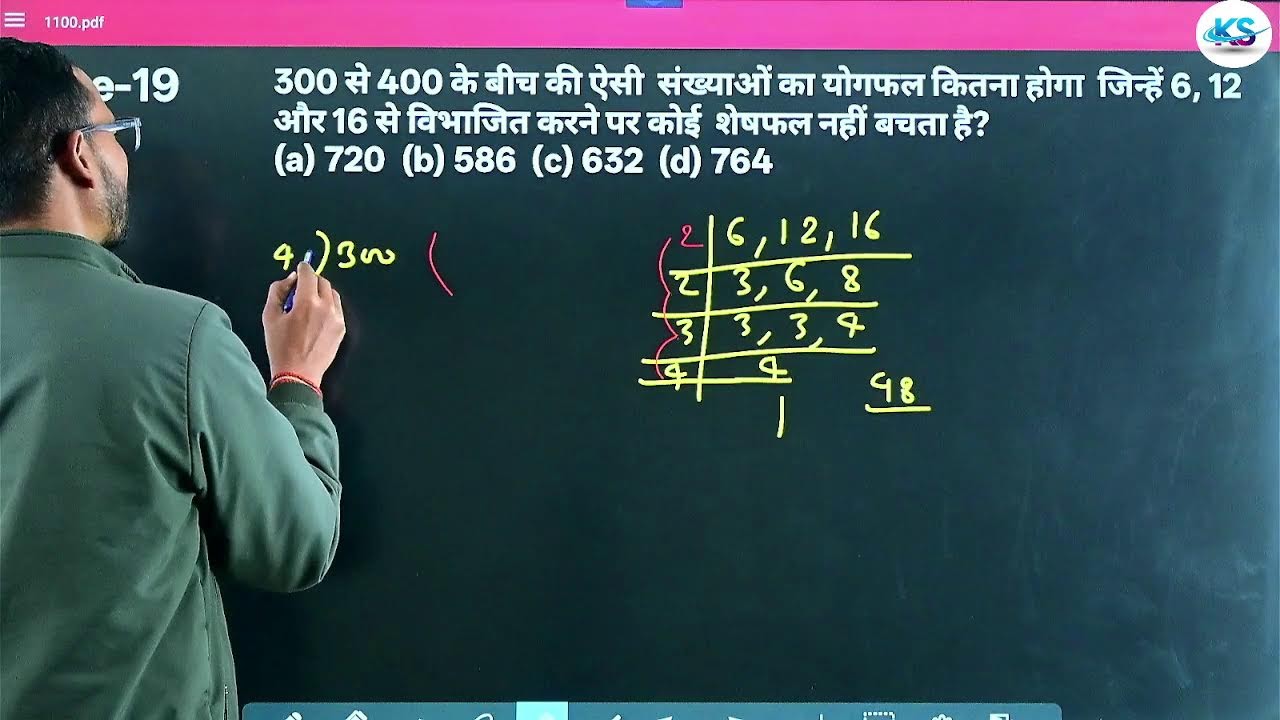 1100.pdf
KS
e-19
300 से 400 के बीच की ऐसी संख्याओं का योगफल कितना होगा जिन्हें 6, 12
और 16 से विभाजित करने पर कोई शेषफल नहीं बचता है?
(a) 720 (b) 586 (c) 632 (d) 764
4 ) 300 (
2 | 6, 12, 16
2 | 3, 6, 8
3 | 3, 3, 4
4 | 4
1
48